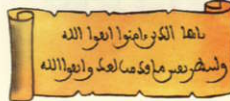 ىاىها الدىں ءامىوا اىڡوا الله
ولىىطر ىڡس ماڡدمٮ لعد واىڡوا الله